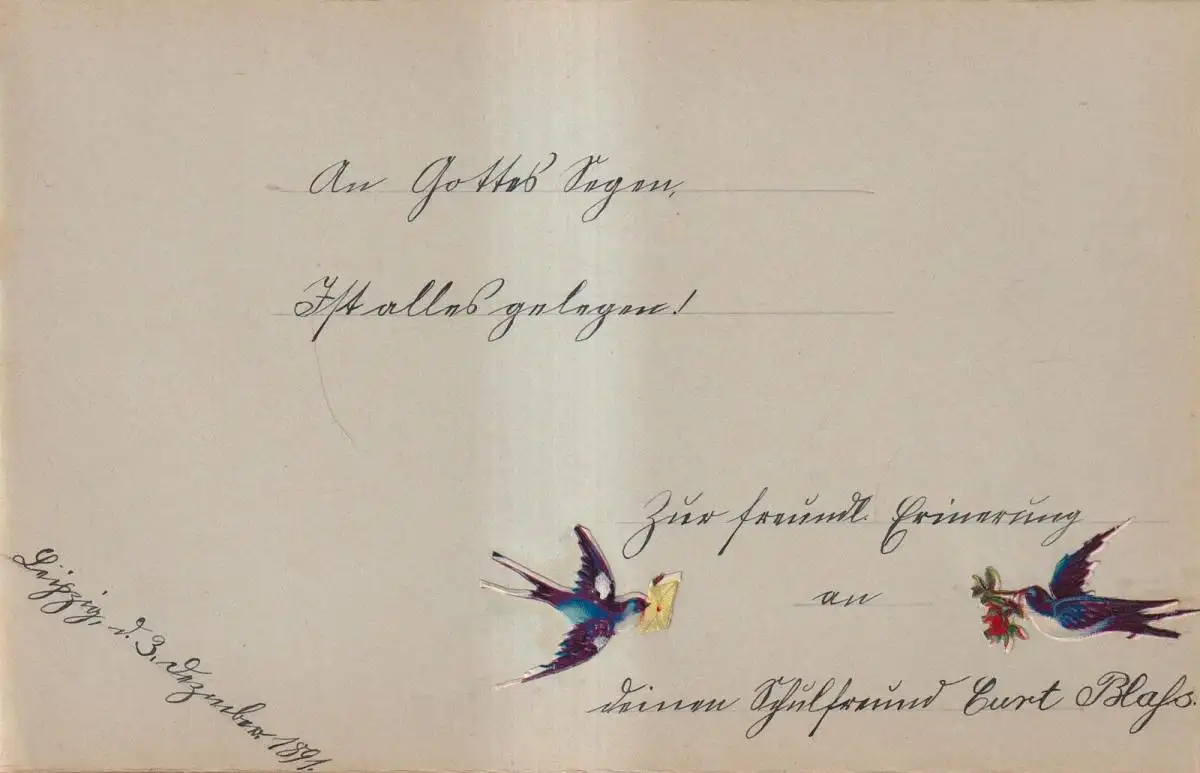 An Gottes Segen,
Ist alles gelegen!
Zur freundl. Erinerung
an
deinen Schulfreund Curt Blaß.
Leipzig, d. 3. Dezember 1891.